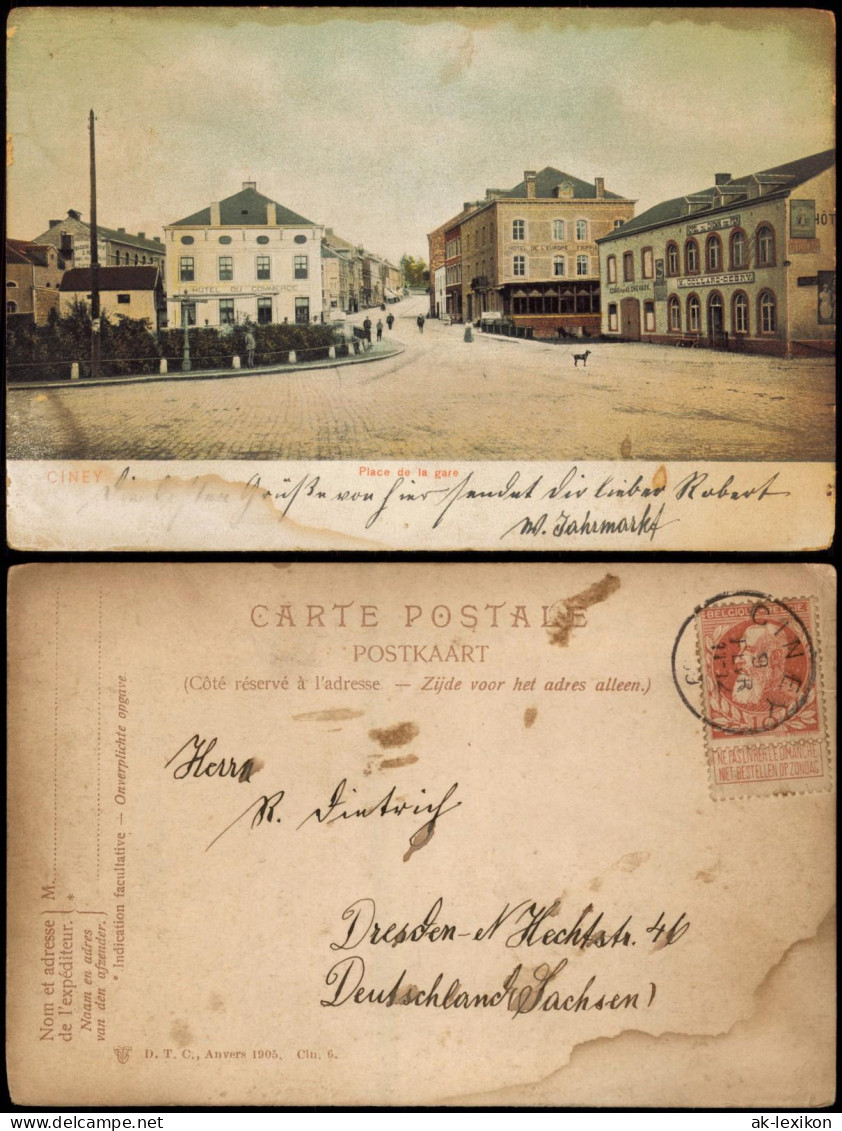 HÔTEL DU COMMERCE
HÔTEL DE L'EUROPE
HÔT
CINEY
Place de la gare
Grüße von hier sendet Dir lieber Robert
W. Jahrmarkt
CARTE POSTALE
POSTKAART
(Côté réservé à l'adresse — Zijde voor het adres alleen.)
BELGIQUE
CINEY
9
10
NE PAS LIVRER LE DIMANCHE
NIET BESTELLEN OP ZONDAG
Herrn
R. Dietrich
Dresden-N Hechtstr. 46
Deutschland (Sachsen)
Nom et adresse
de l'expéditeur.
M.
*
Naam en adres
van den afzender.
* Indication facultative — Onverplichte opgave
D. T. C., Anvers 1905. Cin. 6.
ak-lexikon